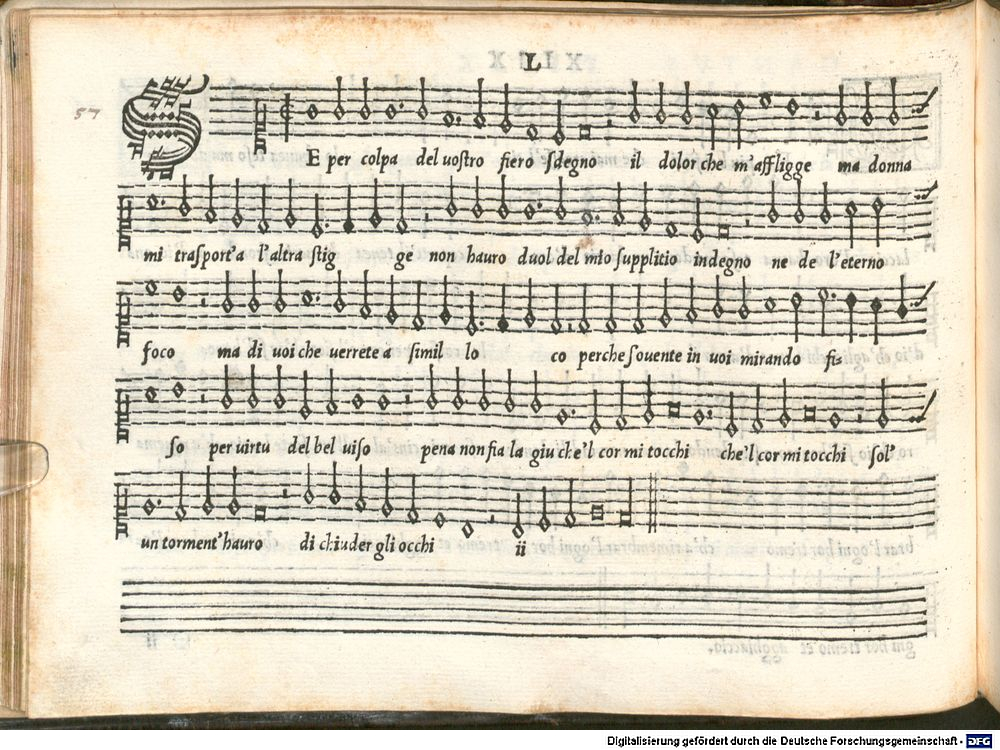 L
57
SE per colpa del uostro fiero sdegno il dolor che m'affligge ma donna
mi trasport'a l'altra stig ge non hauro duol del mio supplitio indegno ne de l'eterno
foco ma di uoi che uerrete a simil lo co perche souente in uoi mirando fis
so per uirtu del bel uiso pena non fia la giu che'l cor mi tocchi che'l cor mi tocchi sol'
un torment'hauro di chiuder gli occhi ii
Digitalisierung gefördert durch die Deutsche Forschungsgemeinschaft - DFG